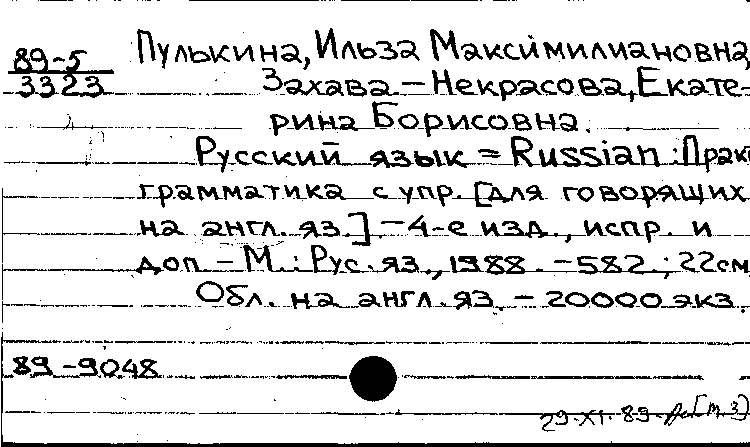 Пулькина, Ильза Максимилиановна,
89-5
3323
Захава – Некрасова, Екате-
рина Борисовна.
Русский язык = Russian : Прак
грамматика с упр. [для говорящих
на англ. яз.] – 4-е изд., испр. и
доп. – М. : Рус. яз., 1988. – 582. ; 22см
Обл. на англ. яз. – 20000 экз.
89-9048
29-XI-89